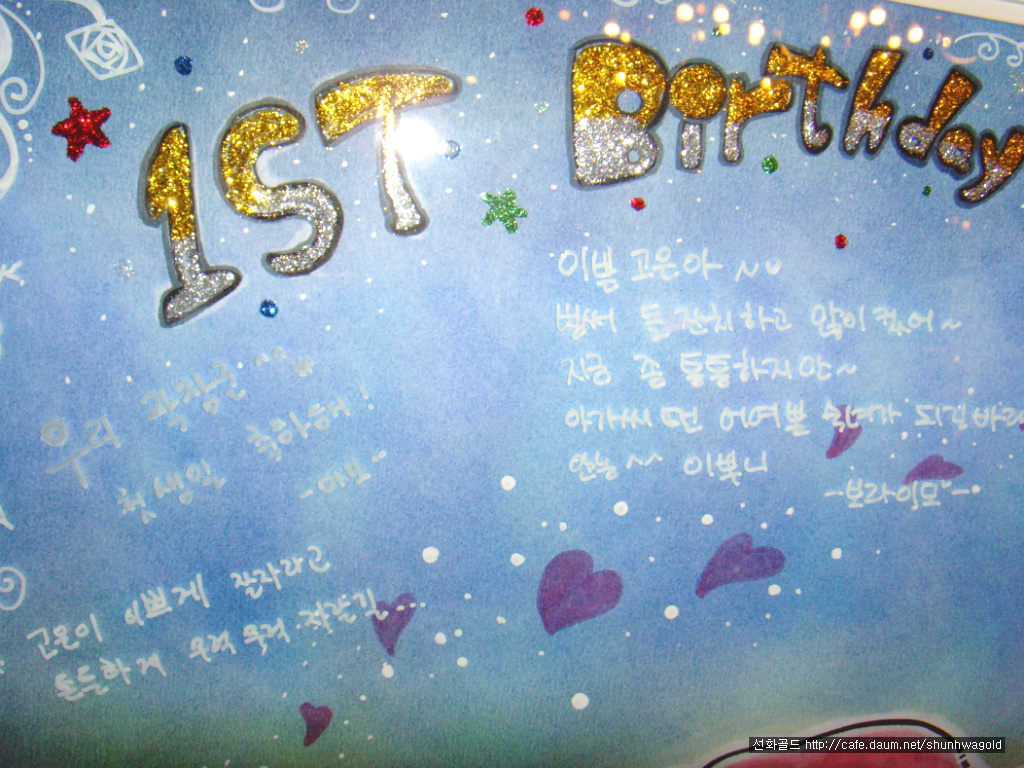 1ST Birthday
이쁜 고은아 ~♡
벌써 돌잔치하고 많이 컸어~
지금 좀 통통하지만~
아가씨 땐 어여쁜 숙녀가 되길 바라
안농 ^^ 이쁘니
-보라이모-
우리 ^^
첫 생일 축하해!
-이모-
고은이 이쁘게 잘 자라고
튼튼하게 무럭무럭 자라길...
선화골드 http://cafe.daum.net/shunhwagold